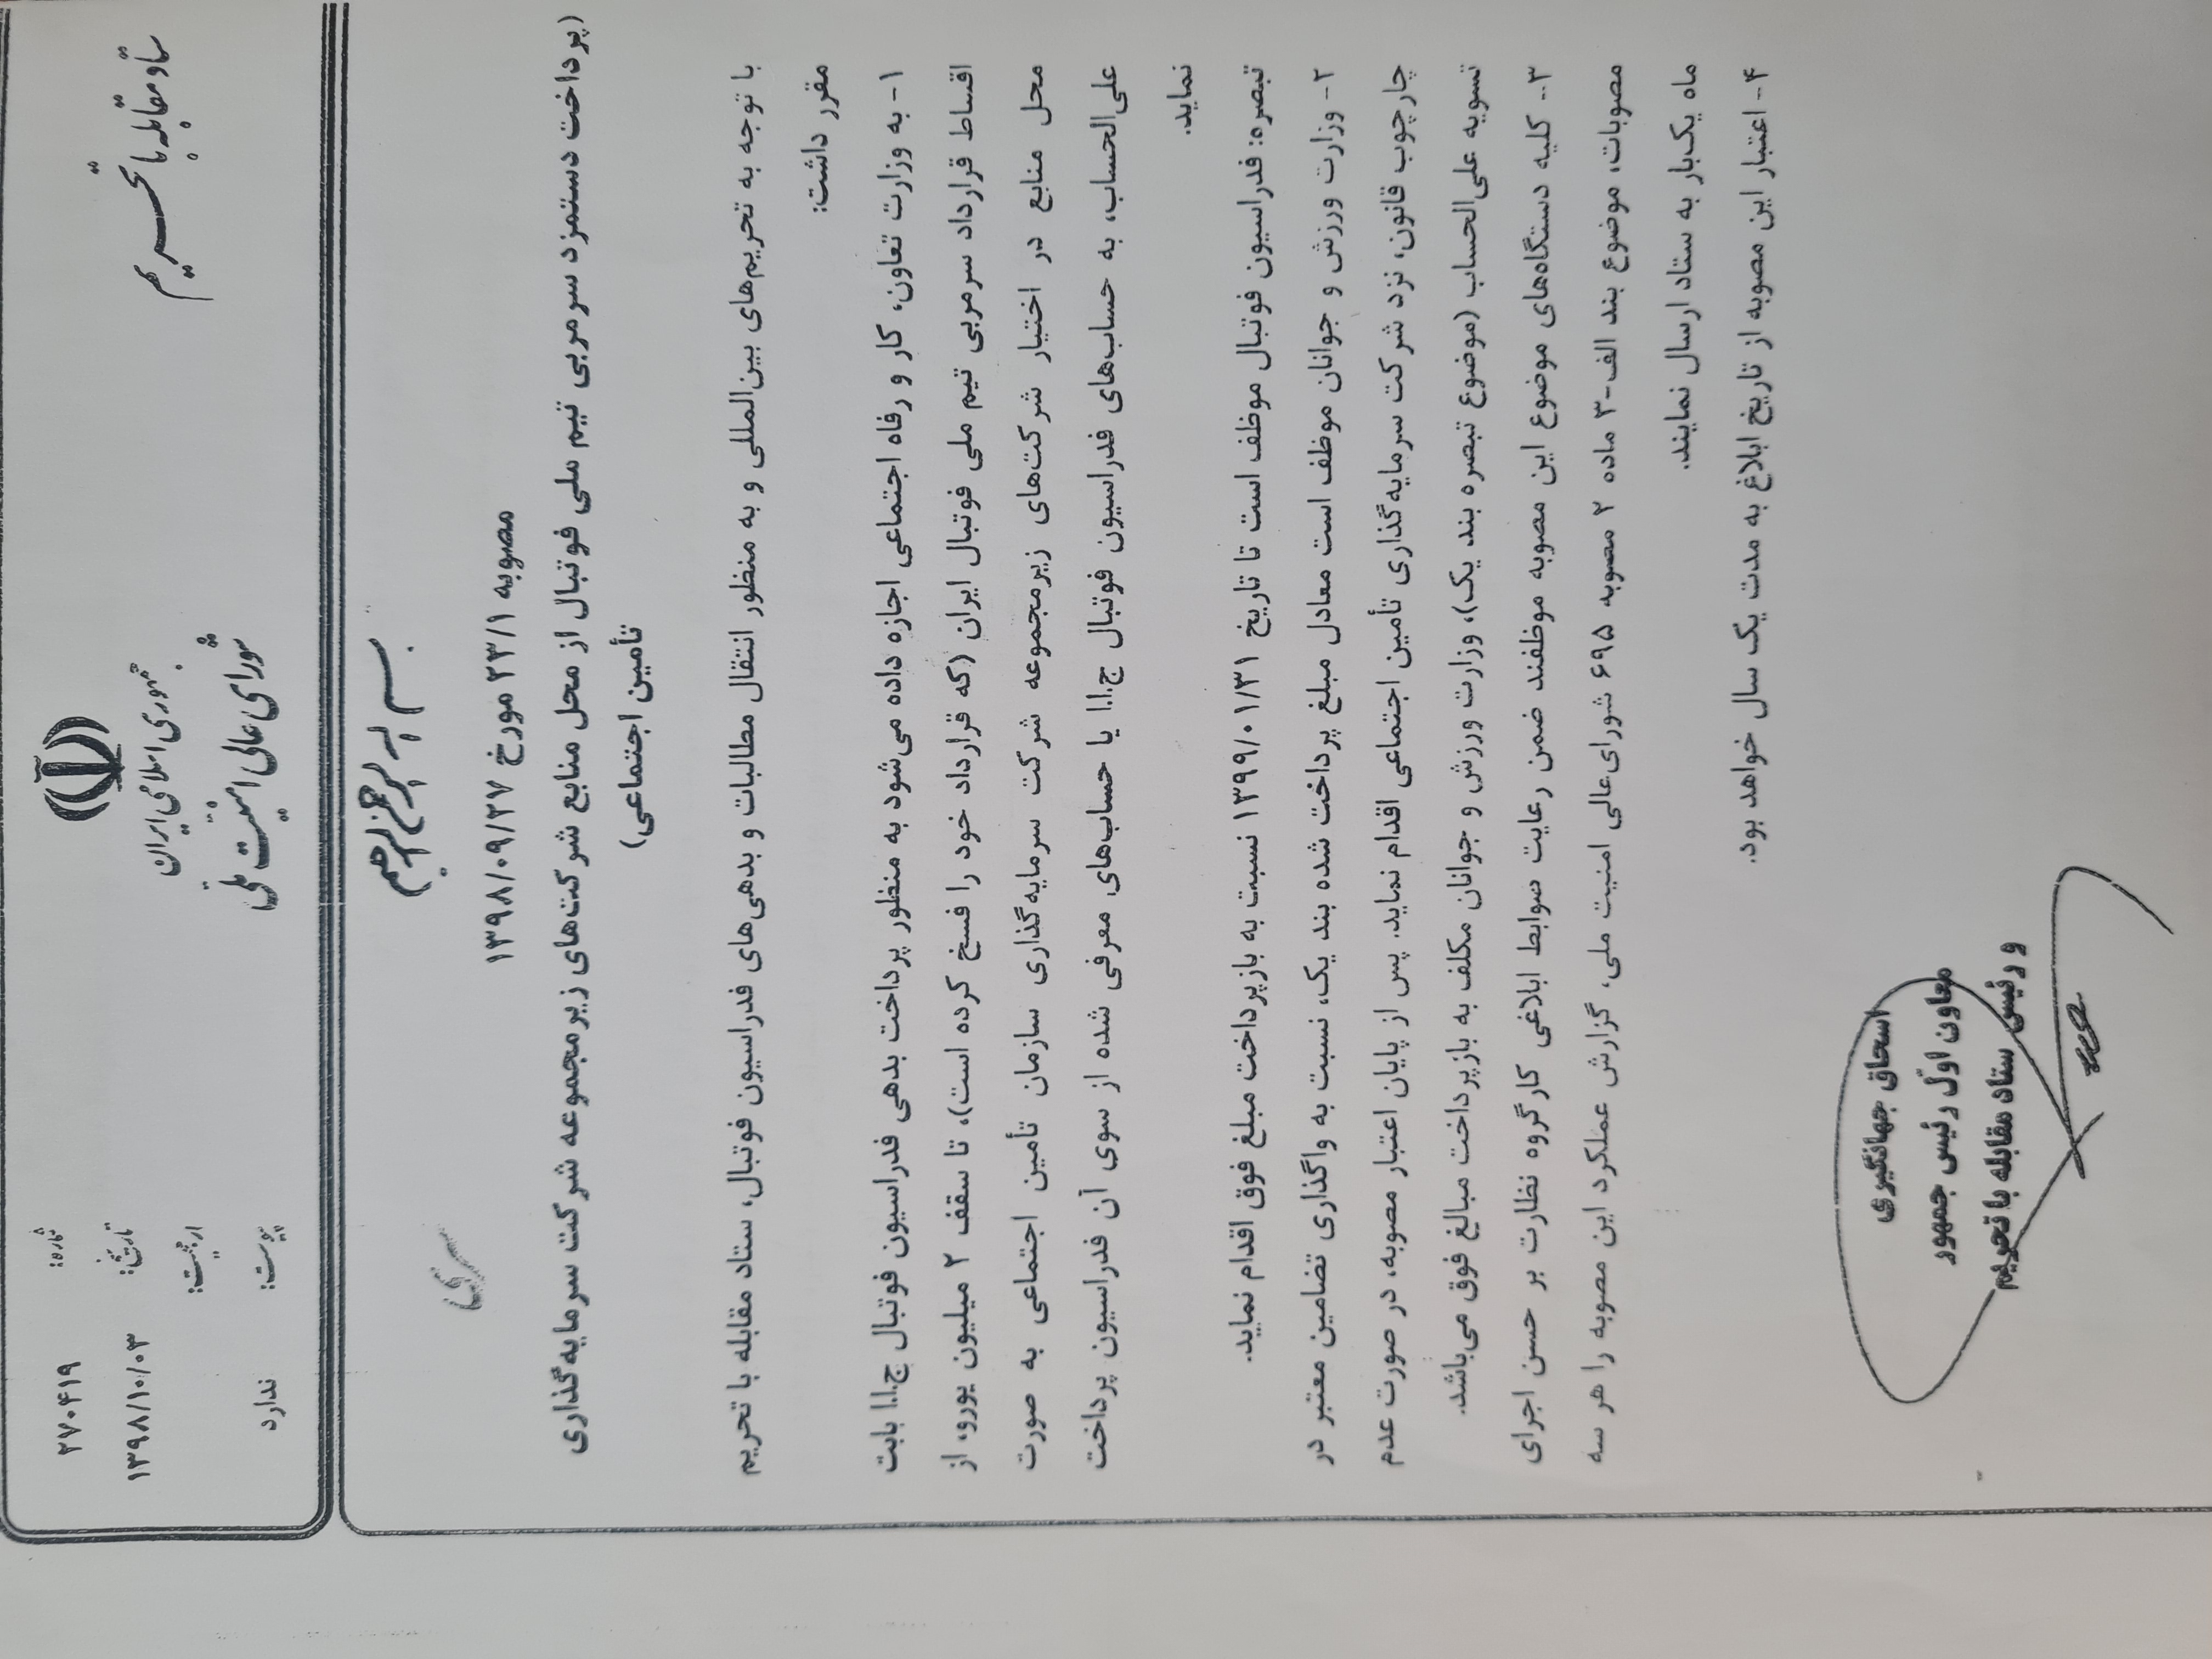 ستاد مقابله با تحریم
جمهوری اسلامی ایران
شورای عالی امنیت ملی
شماره: ۲۷۰۴۱۹
تاریخ: ۱۳۹۸/۱۰/۰۳
ارجحیت:
پیوست: ندارد
بسم الله الرحمن الرحیم
سری
مصوبه ۲۳/۱ مورخ ۱۳۹۸/۰۹/۲۷
(پرداخت دستمزد سرمربی تیم ملی فوتبال از محل منابع شرکت‌های زیرمجموعه شرکت سرمایه‌گذاری
تأمین اجتماعی)
با توجه به تحریم‌های بین‌المللی و به منظور انتقال مطالبات و بدهی‌های فدراسیون فوتبال، ستاد مقابله با تحریم
مقرر داشت:
۱- به وزارت تعاون، کار و رفاه اجتماعی اجازه داده می‌شود به منظور پرداخت بدهی فدراسیون فوتبال ج.ا.ا بابت
اقساط قرارداد سرمربی تیم ملی فوتبال ایران (که قرارداد خود را فسخ کرده است)، تا سقف ۲ میلیون یورو، از
محل منابع در اختیار شرکت‌های زیرمجموعه شرکت سرمایه‌گذاری سازمان تأمین اجتماعی به صورت
علی‌الحساب، به حساب‌های فدراسیون فوتبال ج.ا.ا یا حساب‌های معرفی شده از سوی آن فدراسیون پرداخت
نماید.
تبصره: فدراسیون فوتبال موظف است تا تاریخ ۱۳۹۹/۰۱/۳۱ نسبت به بازپرداخت مبلغ فوق اقدام نماید.
۲- وزارت ورزش و جوانان موظف است معادل مبلغ پرداخت شده بند یک، نسبت به واگذاری تضامین معتبر در
چارچوب قانون، نزد شرکت سرمایه‌گذاری تأمین اجتماعی اقدام نماید. پس از پایان اعتبار مصوبه، در صورت عدم
تسویه علی‌الحساب (موضوع تبصره بند یک)، وزارت ورزش و جوانان مکلف به بازپرداخت مبالغ فوق می‌باشد.
۳- کلیه دستگاه‌های موضوع این مصوبه موظفند ضمن رعایت ضوابط ابلاغی کارگروه نظارت بر حسن اجرای
مصوبات، موضوع بند الف-۳ ماده ۲ مصوبه ۶۹۵ شورای عالی امنیت ملی، گزارش عملکرد این مصوبه را هر سه
ماه یک‌بار به ستاد ارسال نمایند.
۴- اعتبار این مصوبه از تاریخ ابلاغ به مدت یک سال خواهد بود.
اسحاق جهانگیری
معاون اول رئیس جمهور
و رئیس ستاد مقابله با تحریم